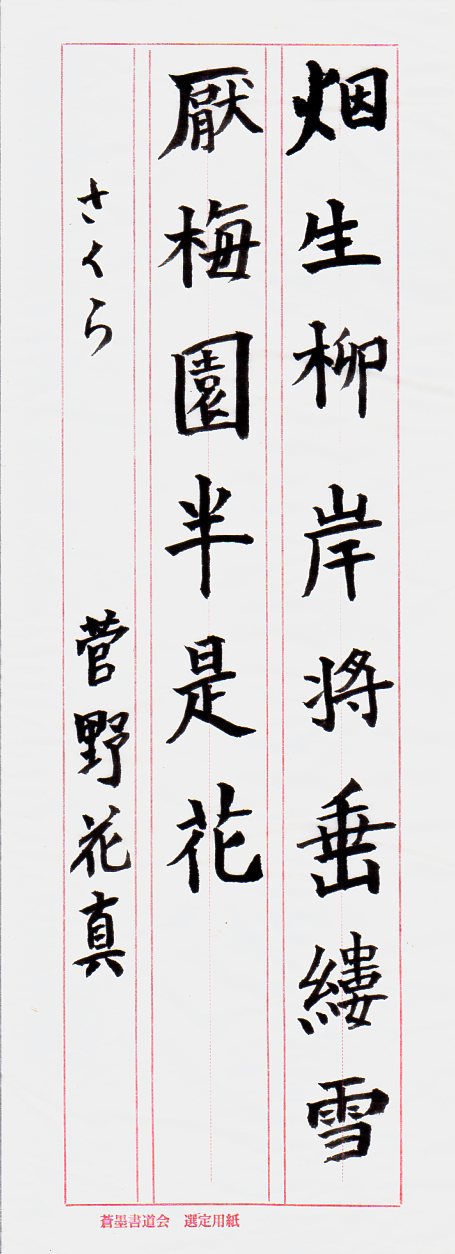 烟生柳岸将垂縷雪
厭梅園半是花
さくら　菅野花真
蒼墨書道会　選定用紙